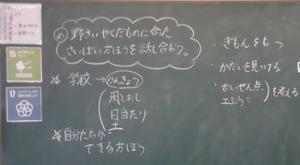 め 野さいやくだものに合った
さいばい方ほうを話し合おう。
・学校→かんきょう
風とおし
日当たり
土
・自分たちが
できる方ほう
・ぎもんをもつ
・かだいを見つける
・かいぜん点
エふう
を考える
15
17